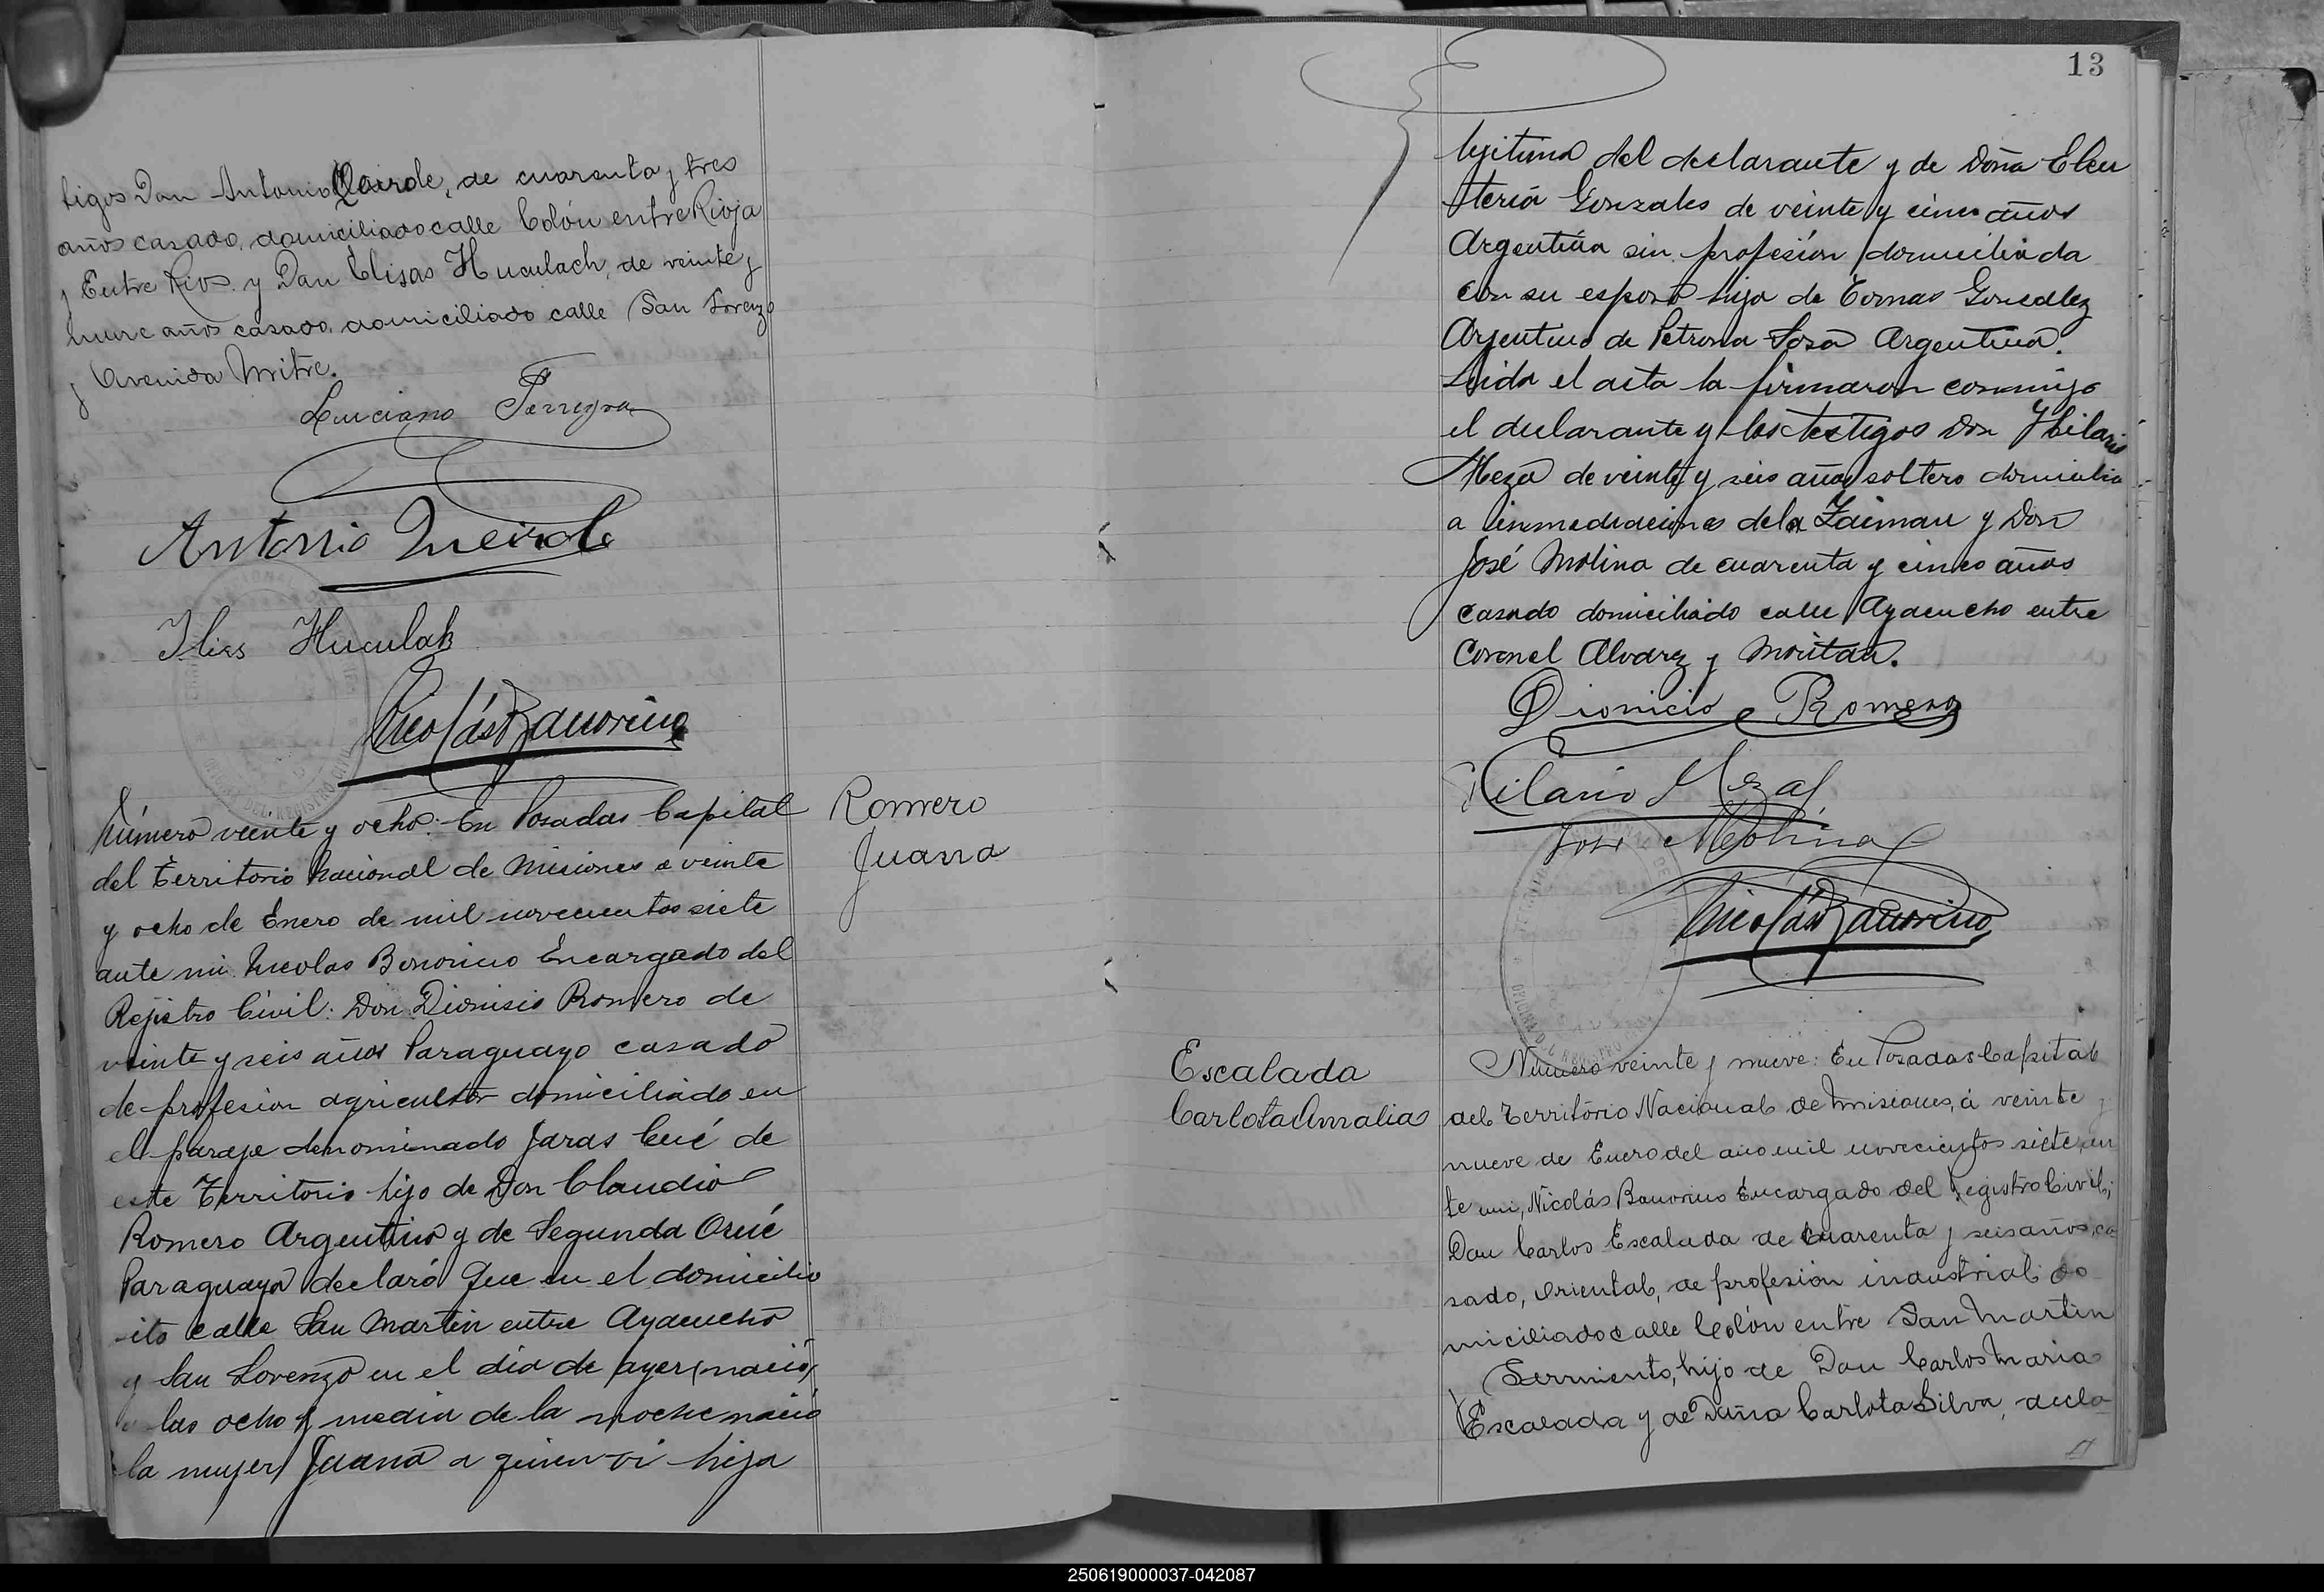 tigos Don Antonio Queirole, de cuarenta y tres
años casado, domiciliado calle Colón entre Rioja
y Entre Rios y Don Elisas Huculach, de veinte y
nueve años casado, domiciliado calle San Lorenzo
y Avenida Mitre.
Luciano Ferreyra
Antonio Queirolo
Ilies Huculak
Nicolás Bauorino
Número veinte y ocho: En Posadas Capital
del Territorio Nacional de Misiones a veinte
y ocho de Enero de mil novecientos siete
ante mi Nicolas Bonorino Encargado del
Rejistro Civil: Don Dionisio Romero de
veinte y seis años Paraguayo casado
de profesion agricultor domiciliado en
el paraje denominado Jaras Cué de
este Territorio hijo de Don Claudio
Romero Argentino y de Segunda Orué
Paraguaya declaró Que en el domicilio
ito calle San Martin entre Ayacucho
y San Lorenzo en el dia de ayer (nació)
a las ocho y media de la noche nació
la mujer Juana a quien vi hija
Romero
Juana
13
lejitima del declarante y de Doña Eleu
teria Gonzales de veinte y cinco años
Argentina sin profesión domiciliada
con su esposo hija de Tomas Gonzalez
Arjentino de Petrona Sosa Argentina.
Leida el acta la firmaron conmigo
el declarante y los testigos Don Hilario
Meza de veinte y seis años soltero domicilia
a inmediaciones dela Zaiman y Don
José Molina de cuarenta y cinco años
casado domiciliado calle Ayacucho entre
Coronel Alvarez y Moritan.
Dionicio Romero
Hilario Meza
Jose Molina
Nicolás Bauorino
Escalada
Carlota Amalia
Número veinte y nueve: En Posadas Capital
del Territorio Nacional de Misiones, á veinte y
nueve de Enero del año mil novecientos siete, an
te mi, Nicolás Bauorino Encargado del Registro Civil;
Don Carlos Escalada de cuarenta y seis años, ca
sado, Oriental, de profesión industrial do
miciliado calle Colón entre San Martin
y Sermiento, hijo de Don Carlos Maria
Escalada y de Doña Carlota Silva, decla
250619000037-042087